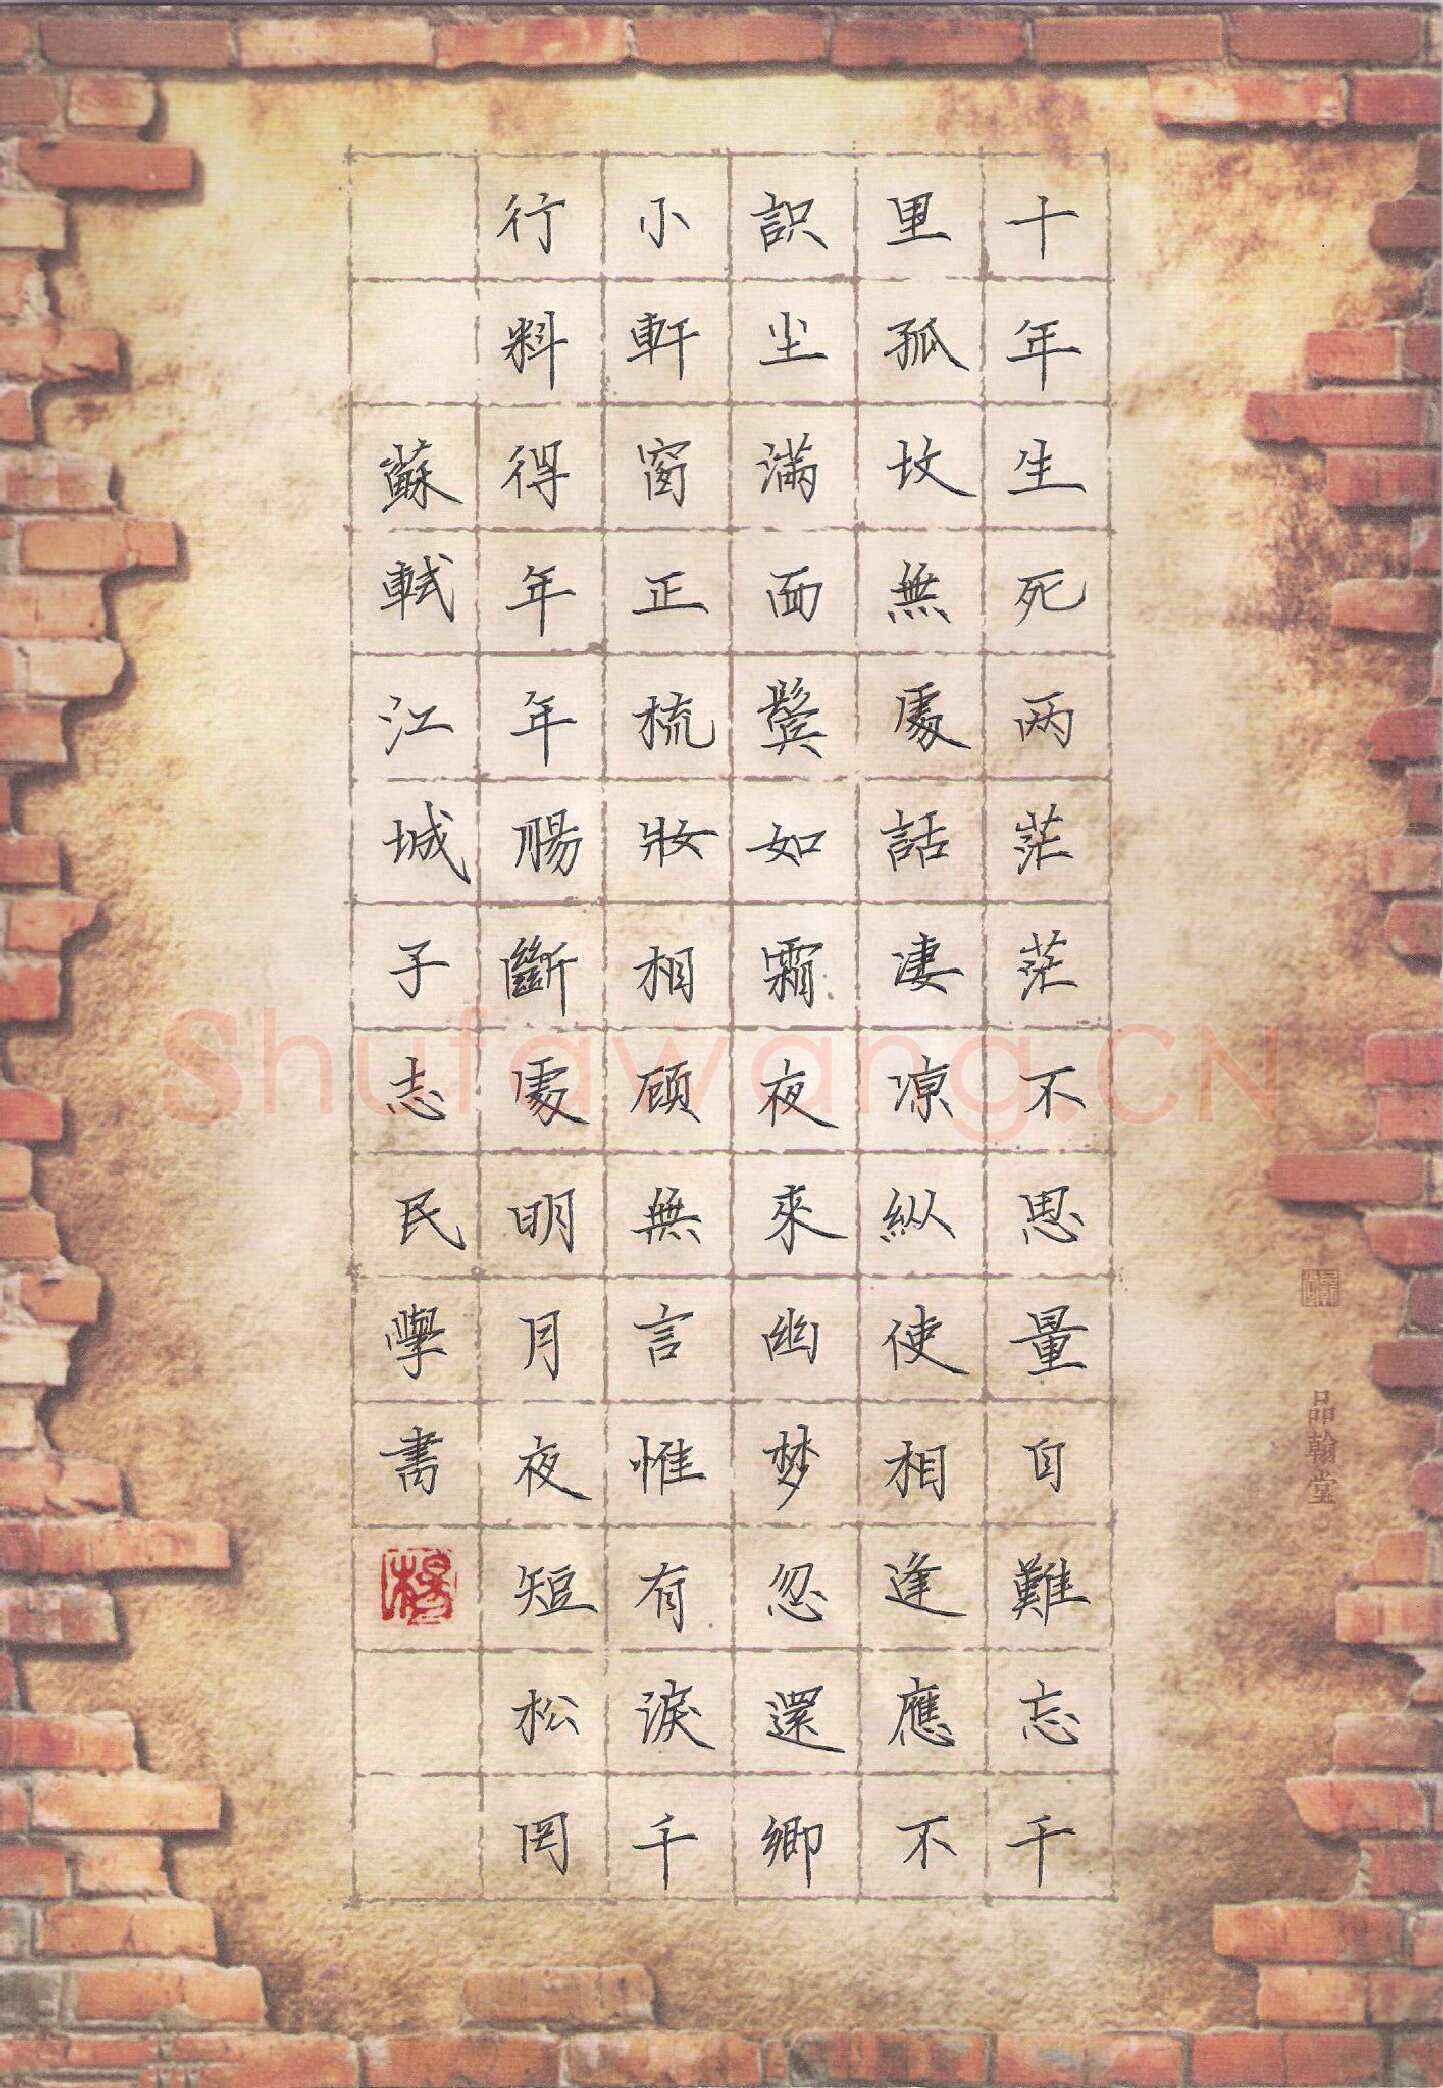 十年生死两茫茫不思量自難忘千
里孤坟無處話凄凉縱使相逢應不
識尘滿面鬓如霜夜來幽梦忽還鄉
小軒窗正梳妝相顧無言惟有淚千
行料得年年腸斷處明月夜短松岡
蘇軾江城子志民學書
楊
品翰堂
Shufawang.CN